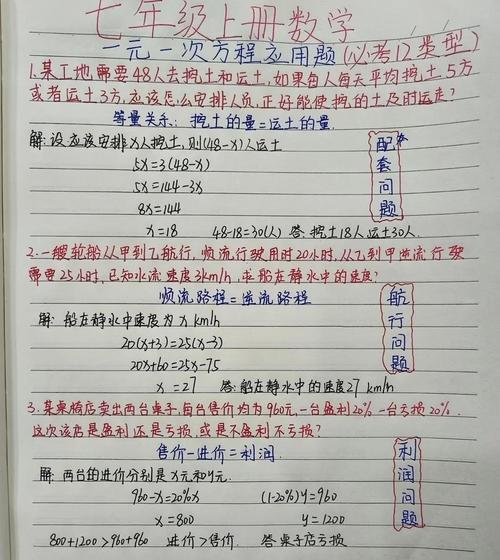 七年级上册数学
一元一次方程应用题(必考12类型)
1.某工地需要48人去挖土和运土,如果每人每天平均挖土5方
或者运土3方,应该怎么安排人员,正好能使挖的土及时运走?
等量关系:挖土的量=运土的量.
解:设应该安排x人挖土,则(48-x)人运土
5x=3(48-x)
5x=144-3x
8x=144
x=18 48-18=30(人) 答:挖土18人运土30人.
配套问题
2.一艘轮船从甲到乙航行,顺流行驶用时20小时,从乙到甲逆流行驶
需要25小时.已知水流速度3km/h,求船在静水中的速度?
顺流路程=逆流路程
解:船在静水中速度为x km/h
20(x+3)=25(x-3)
20x+60=25x-75
x=27 答:船在静水中的速度27km/h
航行问题
3.某桌椅店卖出两台桌子,每台售价均为960元,一台盈利20%一台亏损20%.
这次该店是盈利还是亏损,或是不盈利不亏损?
售价-进价=利润.
解:两台的进价分别是x元和y元.
960-x=20%x (1-20%)y=960
x=800 y=1200
800+1200>960+960 进价>售价. 答:桌子店亏损
利润问题